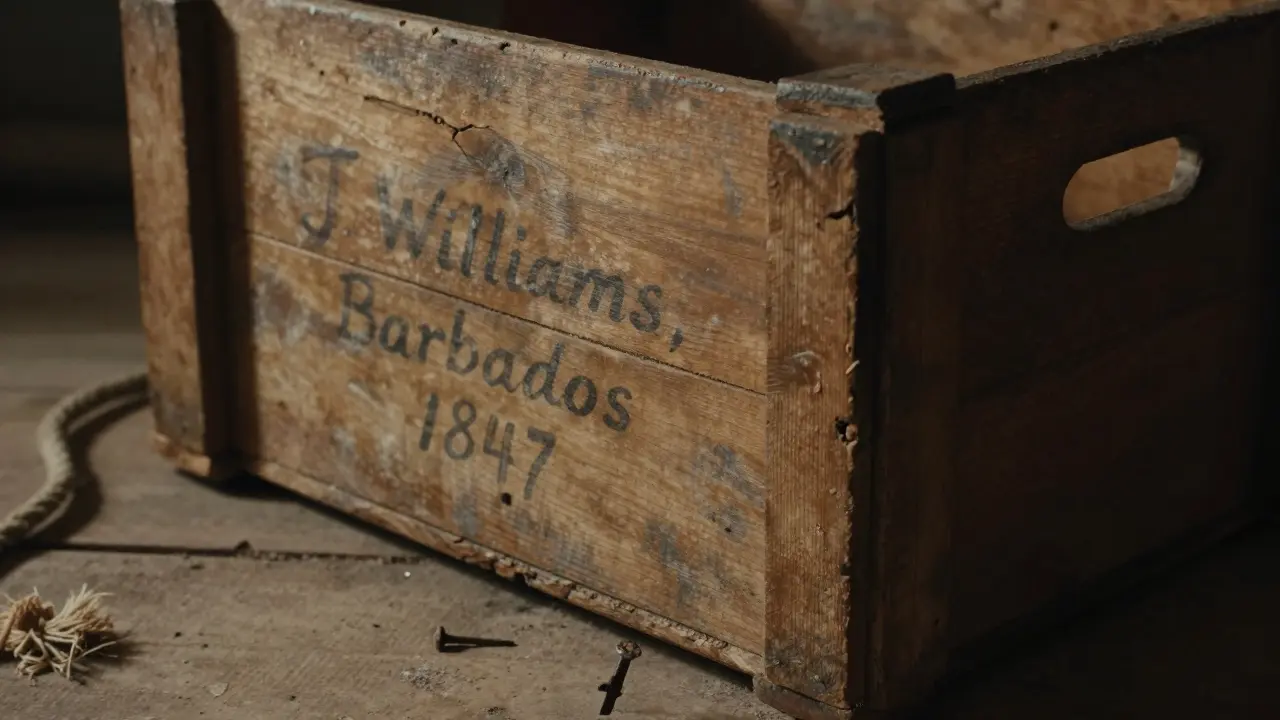 J Williams,
Barbados
1847